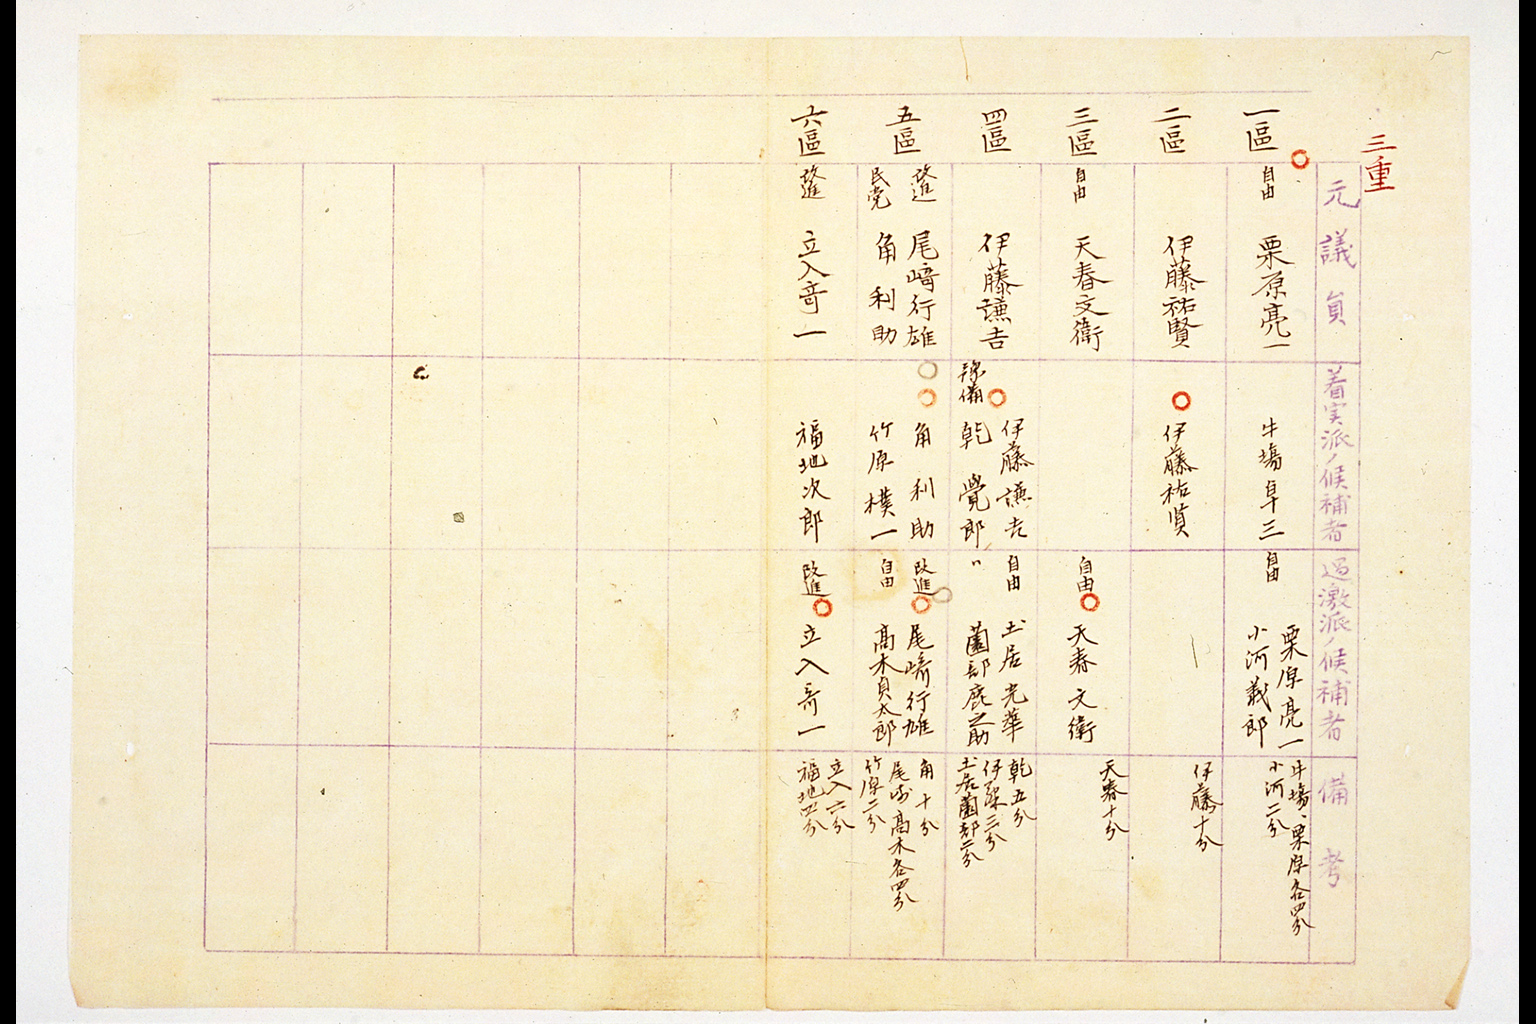 三重
元議員
着実派ノ候補者
過激派ノ候補者
備考
一區
自由
栗原亮一
牛場卓三
自由
栗原亮一
小河義郎
牛場、栗原各四分
小河二分
二區
伊藤祐賢
伊藤祐賢
伊藤十分
三區
自由
天春文衛
自由
天春文衛
天春十分
四區
伊藤謙吉
伊藤謙吉
豫備
乾覺郎
自由
土居光華
〃
薗部鹿之助
乾五分
伊藤三分
土居薗部二分
五區
改進
尾﨑行雄
民党
角利助
角利助
竹原樸一
改進
尾﨑行雄
自由
高木貞太郎
角十分
尾崎高木各四分
竹原二分
六區
改進
立入奇一
福地次郎
改進
立入奇一
立入六分
福地四分